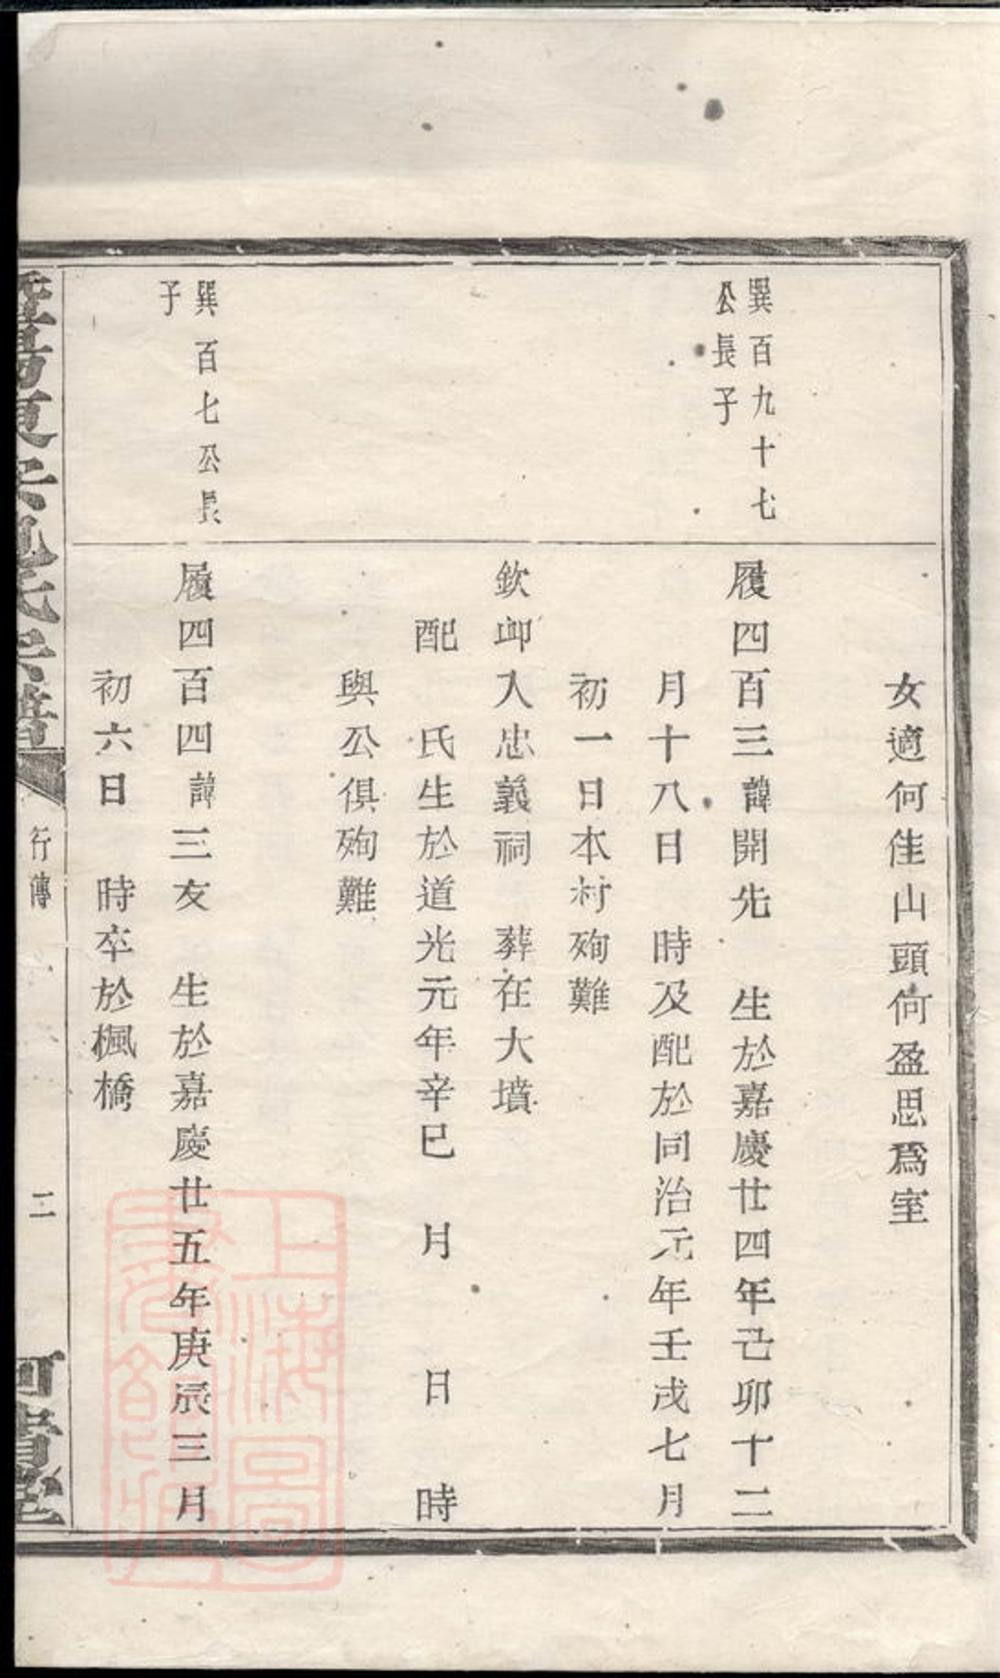 女適何佳山頭何盈思爲室
巽百九十七
公長子
履四百三諱開先 生於嘉慶廿四年己卯十二
月十八日 時及配於同治元年壬戌七月
初一日本村殉難
欽卹入忠義祠 葬在大墳
配 氏生於道光元年辛巳 月 日 時
與公俱殉難
巽百七公長
子
履四百四諱三友 生於嘉慶廿五年庚辰三月
初六日 時卒於楓橋
行傳
二
上海圖
書館藏